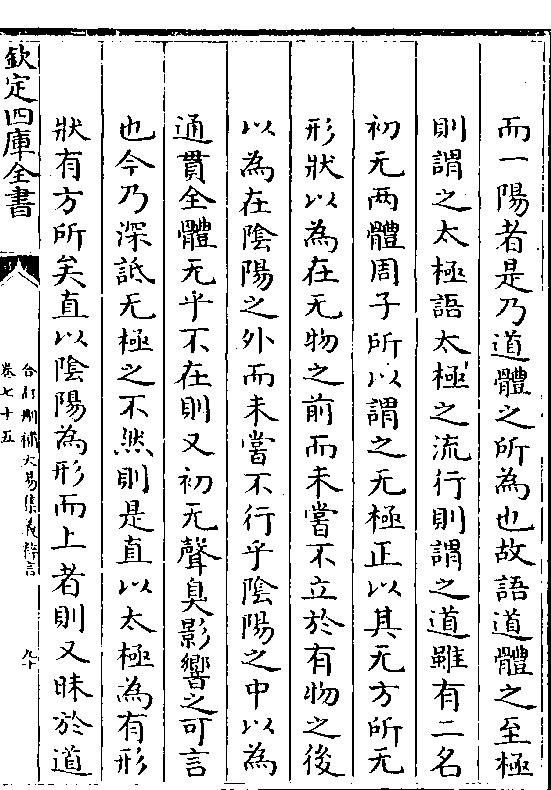 而一陽者是乃道體之所為也故語道體之至極
則謂之太極語太極之流行則謂之道雖有二名
初无两體周子所以謂之无極正以其无方所无
形狀以為在无物之前而未嘗不立於有物之後
以為在陰陽之外而未嘗不行乎陰陽之中以為
通貫全體无乎不在則又初无聲臭影響之可言
也今乃深詆无極之不然則是直以太極為有形
狀有方所矣直以陰陽為形而上者則又昧於道
欽定四庫全書
合訂刪補大易集義粹言
卷七十五
九十